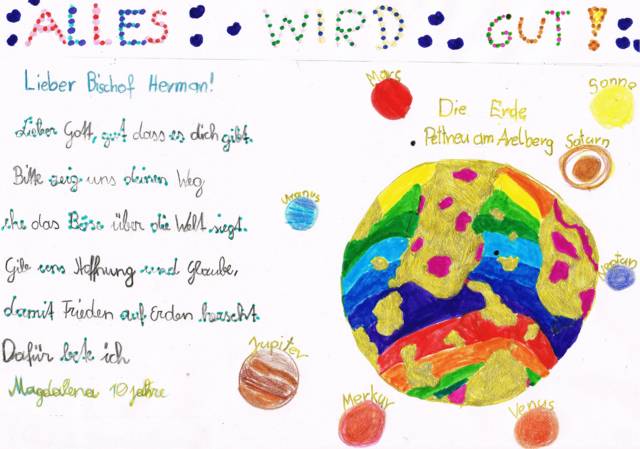 ALLES WIRD GUT!
Lieber Bischof Herman!
Lieber Gott, gut dass es dich gibt.
Bitte zeig uns deinen Weg
ehe das Böse über die Welt siegt.
Gib uns Hoffnung und Glaube,
damit Frieden auf Erden herscht.
Dafür bete ich
Magdalena 10 Jahre
Mars
Sonne
Die Erde
Pettneu am Arlberg
Saturn
Uranus
Neptun
Jupiter
Merkur
Venus